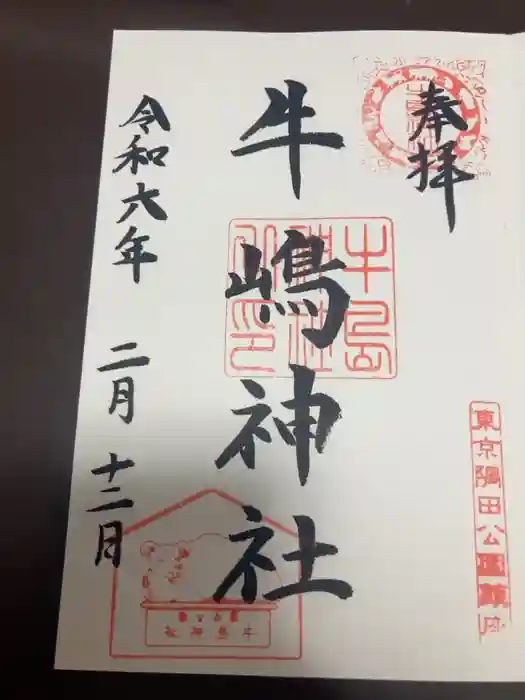 奉拝
東京隅田公園鎮内
牛嶋神社
牛島神社之印
牛島神社
令和六年 二月 十二日